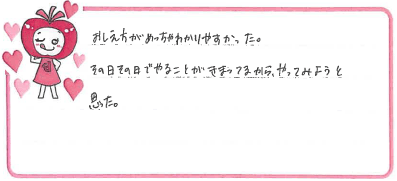 おしえ方がめっちゃわかりやすかった。
その日その日でやることがきまってるから、やってみようと
思った。